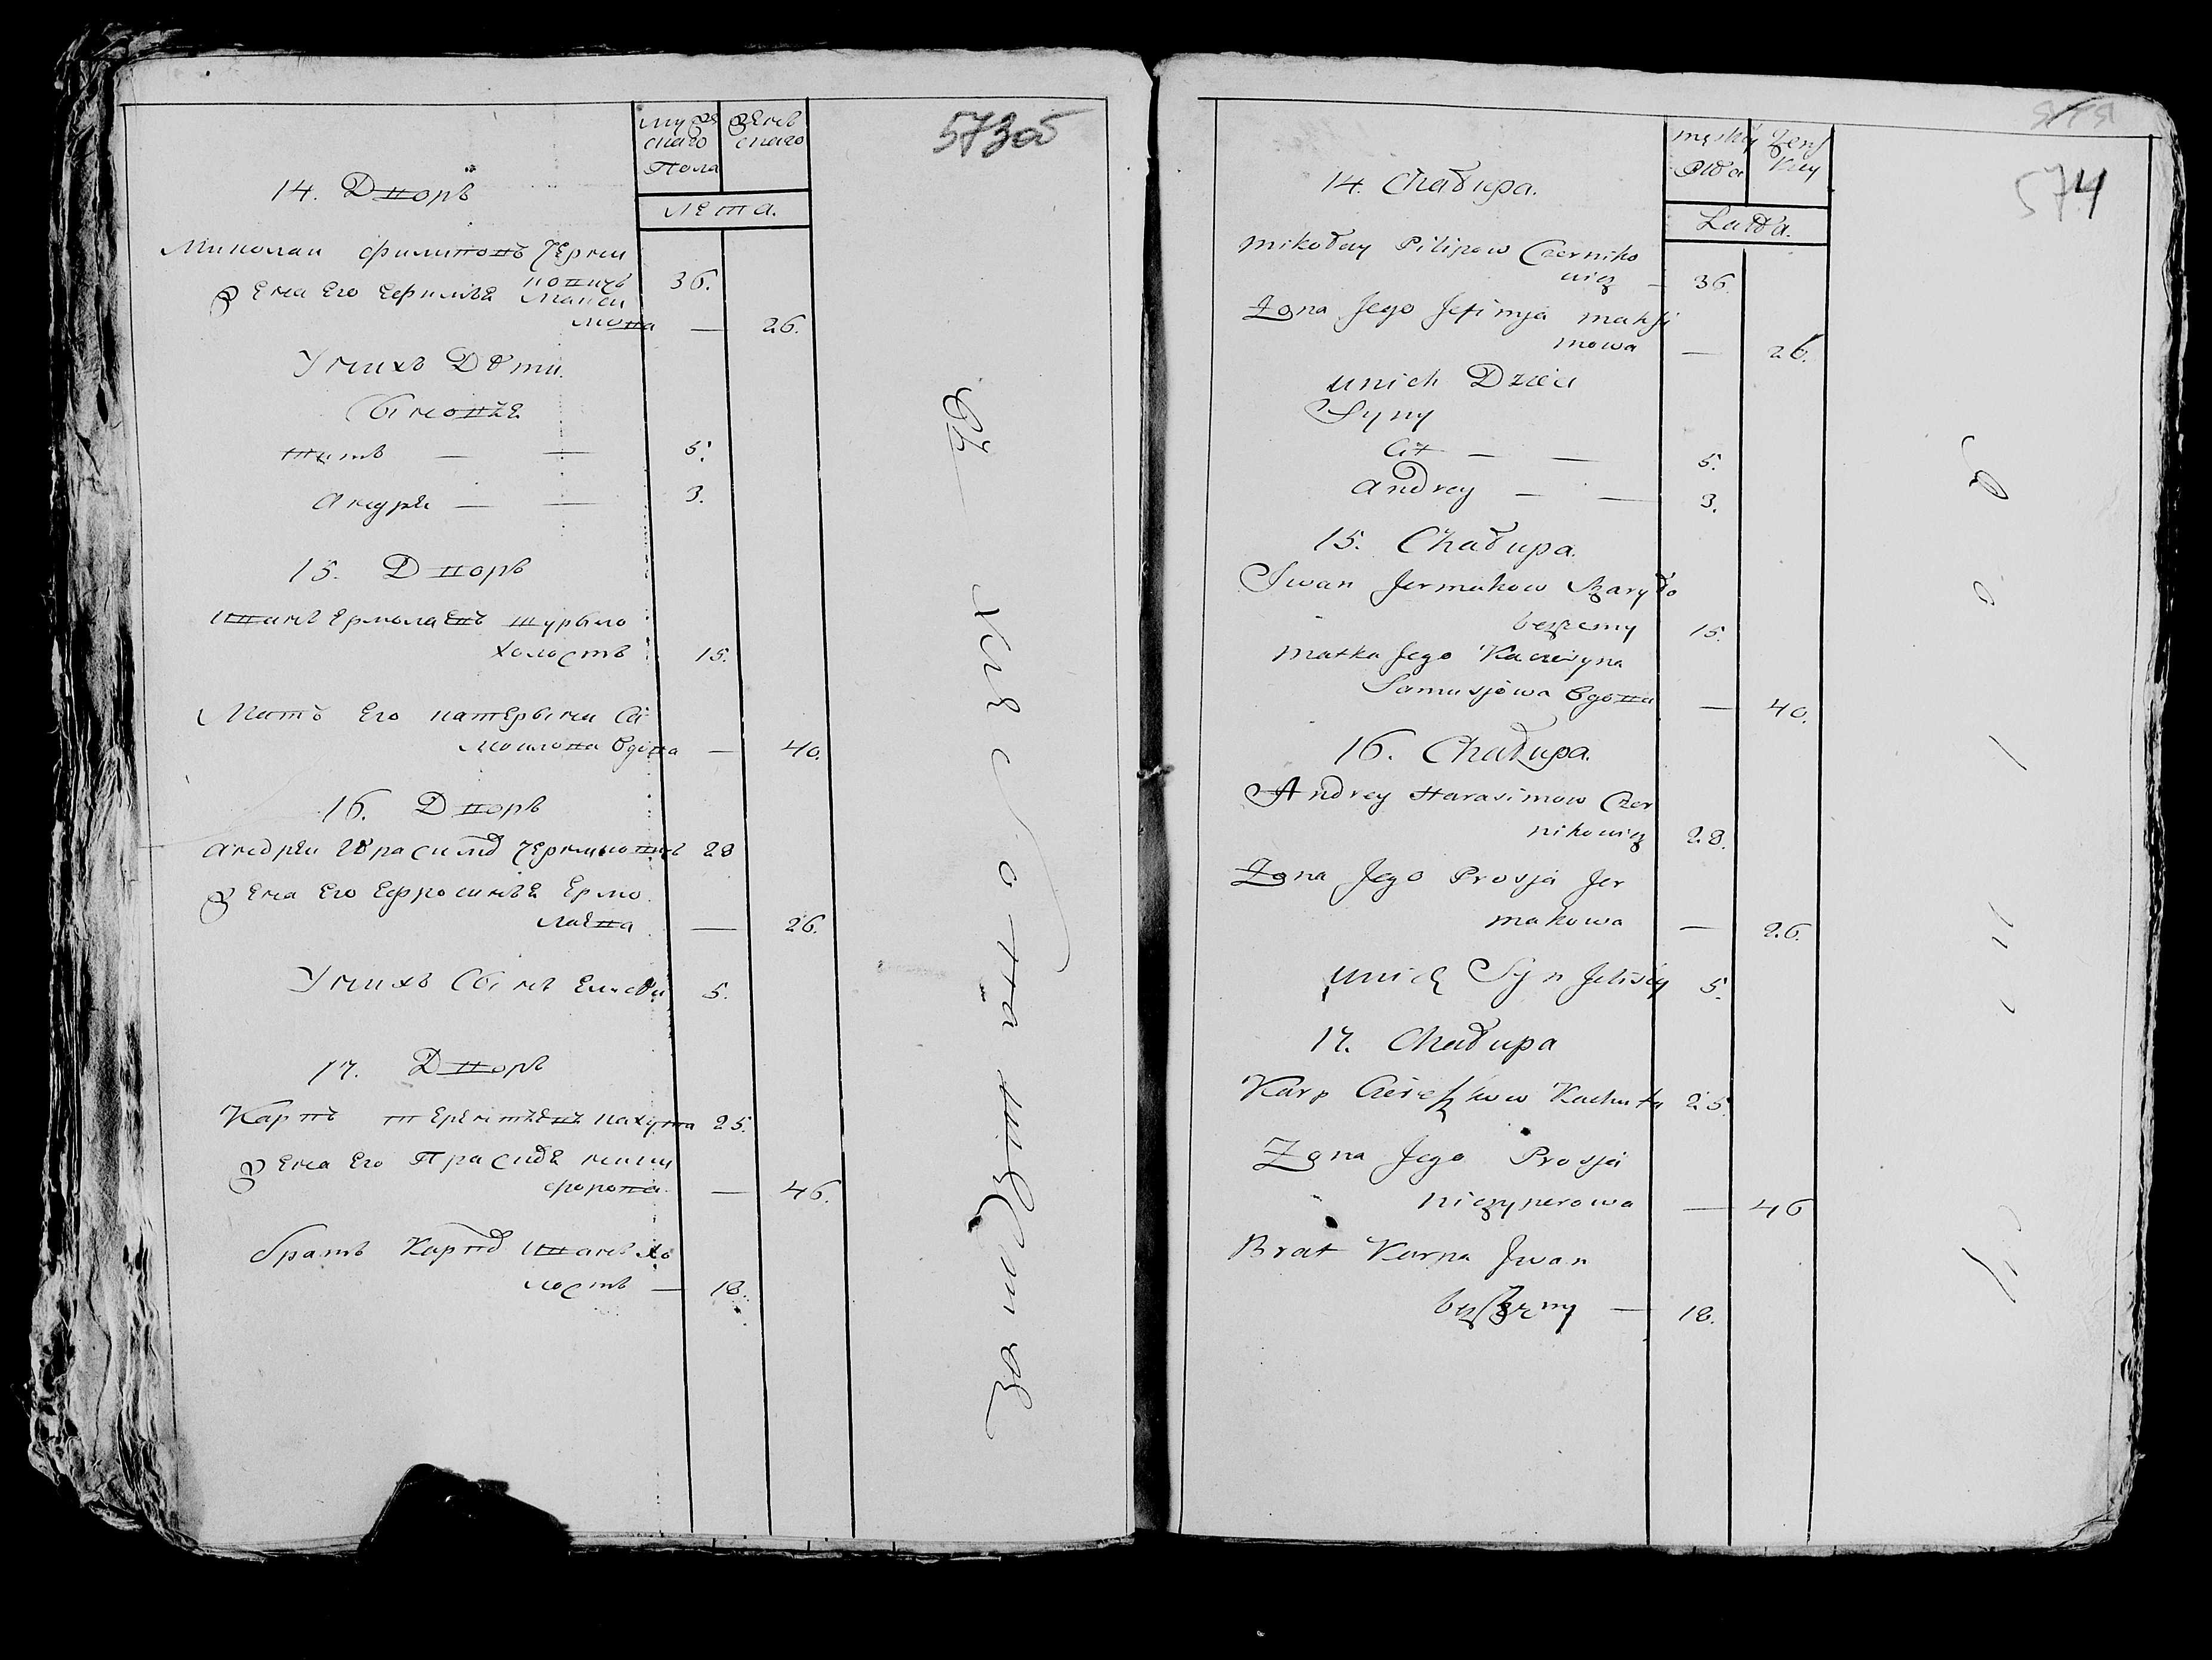 573об
мужескаго Пола
женскаго
Лета.
14. Дворъ
Миколаи Филиповъ Черни
ковичь 36.
Жена Его Ефимья Макси
мова — 26.
У нихъ Дети
Сыновья
Титъ — — 5.
Андреи — — 3.
15. Дворъ
Иванъ Ермолаевъ Шурыло
холостъ 15.
Мать Его Катерына Са
моилова вдова — 40.
16. Дворъ
Андреи Герасимов Черниковичь 28
Жена Его Ефросинья Ермо
лаева — 26.
У нихъ Сынъ Елисеи 5.
17. Дворъ
Карпъ Терентьевъ Кахута 25.
Жена Его Праседья Ники
форова — 46.
Братъ Карпа Иванъ Хо
лостъ — 18.
574
męskiey Płda
żenskiey
Latha.
14. Chałupa.
Mikołay Pilipow Czerniko
wicz — 36.
Żona Jego Jefimja Maksi
mowa — 26.
u nich Dzieci
Syny
Cit — — 5.
Andrey — — 3.
15. Chałupa.
Jwan Jermakow Szaryło
bezżenny 15.
Matka Jego Kacieryna
Samusjowa вдова — 40.
16. Chałupa.
Andrey Harasimow Czer
nikowicz 28.
Żona Jego Prosja Jer
makowa — 26.
u nich Syn Jelisiey 5.
17. Chałupa
Karp Cieieszkow Kachuta 25.
Żona Jego Prosja
Niczyperowa — 46
Brat Karpa Jwan
bezżenny — 18.